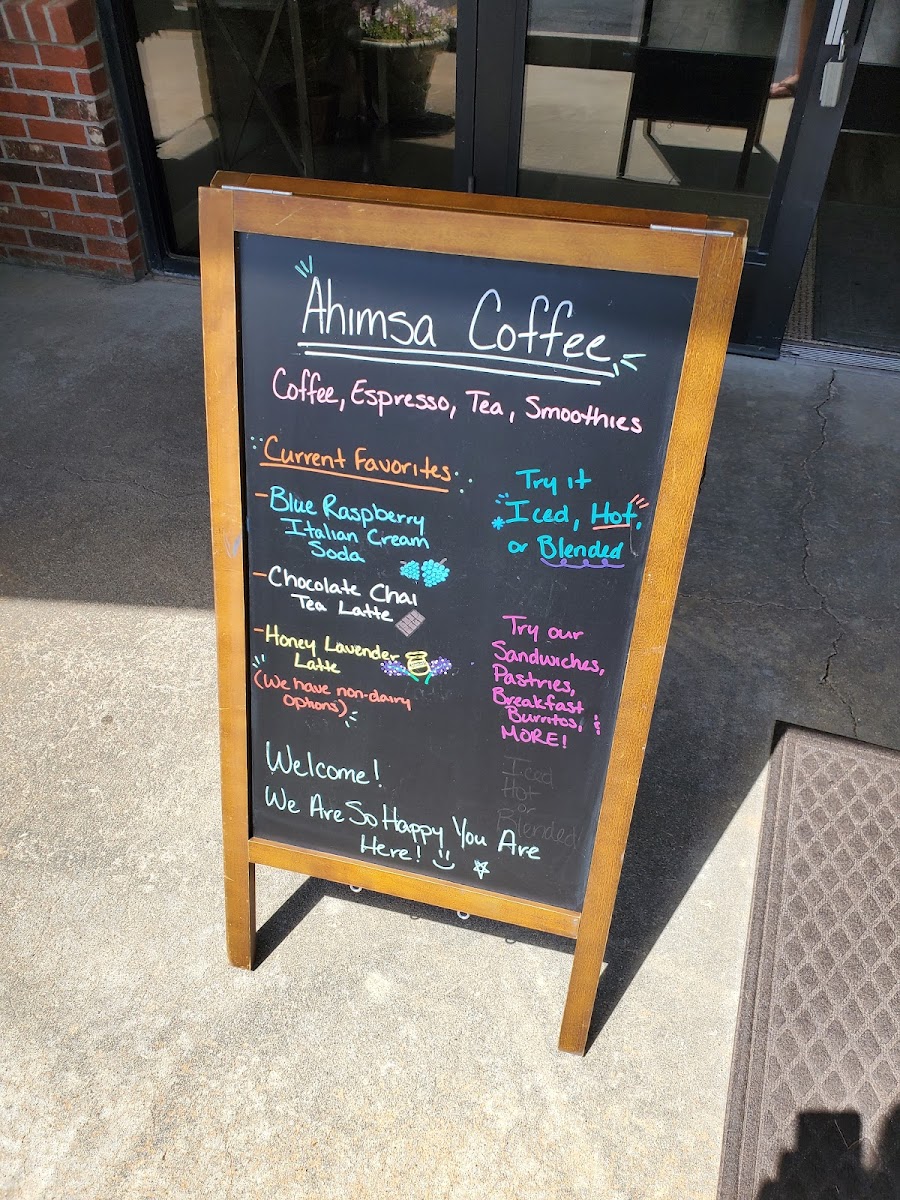 Ahimsa Coffee
Coffee, Espresso, Tea, Smoothies
Current Favorites
- Blue Raspberry
Italian Cream
Soda
- Chocolate Chai
Tea Latte
- Honey Lavender
Latte
(We have non-dairy
options)
Try it
Iced, Hot,
or Blended
Try our
Sandwiches,
Pastries,
Breakfast
Burritos, &
MORE!
Iced
Hot
or
Blended
Welcome!
We Are So Happy You Are
Here!